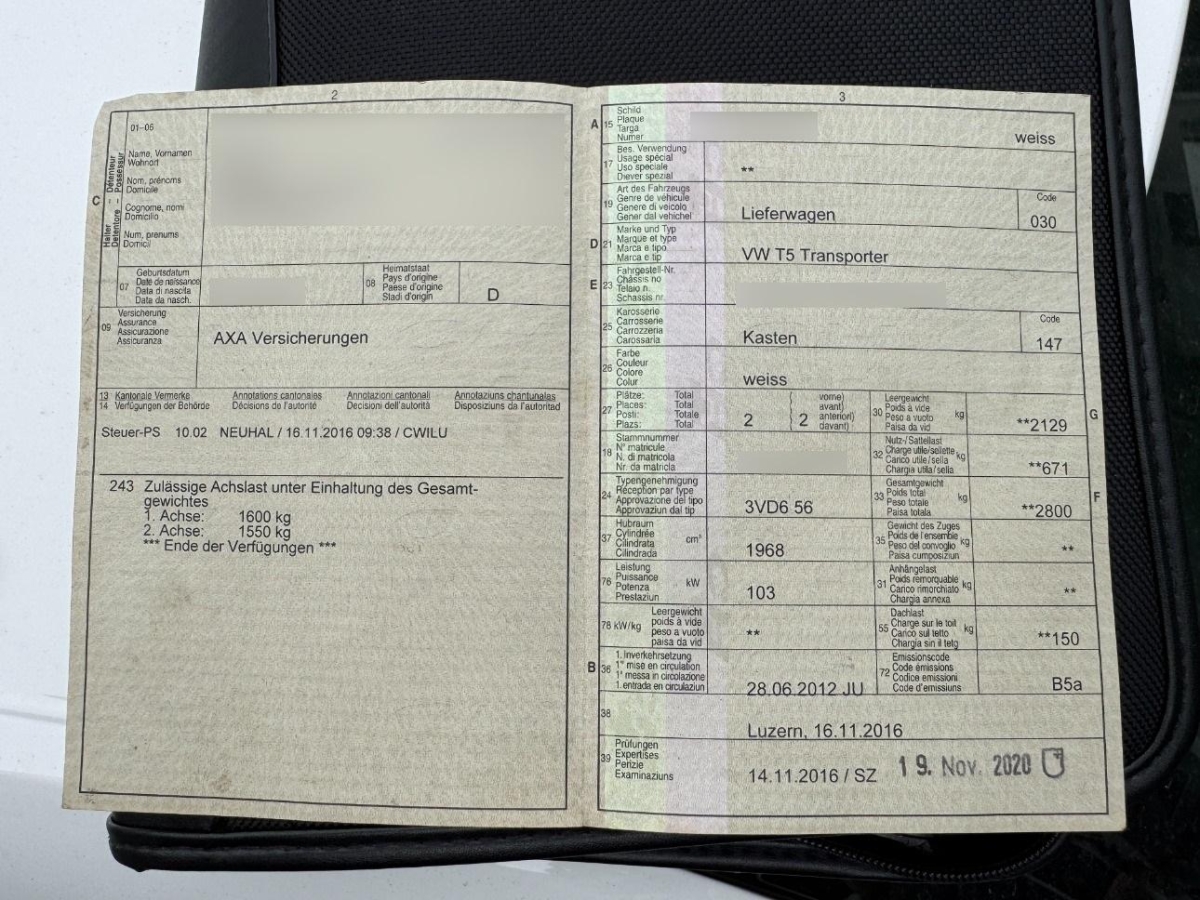 2
01–06
Halter – Détenteur
Detentore – Possessur
C
Name, Vornamen
Wohnort
Nom, prénoms
Domicile
Cognome, nomi
Domicilio
Num, prenums
Domicil
07
Geburtsdatum
Date de naissance
Data di nascita
Data da nasch.
08
Heimatstaat
Pays d'origine
Paese d'origine
Stadi d'origin
D
09
Versicherung
Assurance
Assicurazione
Assicuranza
AXA Versicherungen
13 Kantonale Vermerke Annotations cantonales Annotazioni cantonali Annotaziuns chantunalas
14 Verfügungen der Behörde Décisions de l'autorité Decisioni dell'autorità Disposiziuns da l'autoritad
Steuer-PS 10.02 NEUHAL / 16.11.2016 09:38 / CWILU
243 Zulässige Achslast unter Einhaltung des Gesamt-
gewichtes
1. Achse: 1600 kg
2. Achse: 1550 kg
*** Ende der Verfügungen ***
3
A 15
Schild
Plaque
Targa
Numer
weiss
17
Bes. Verwendung
Usage spécial
Uso speciale
Diever spezial
**
19
Art des Fahrzeugs
Genre de véhicule
Genere di veicolo
Gener dal vehichel
Lieferwagen
Code
030
D 21
Marke und Typ
Marque et type
Marca e tipo
Marca e tip
VW T5 Transporter
E 23
Fahrgestell-Nr.
Châssis no
Telaio n.
Schassis nr.
25
Karosserie
Carrosserie
Carrozzeria
Carossaria
Kasten
Code
147
26
Farbe
Couleur
Colore
Colur
weiss
27
Plätze: Total
Places: Total
Posti: Totale
Plazs: Total
2
2
vorne)
avant)
anteriori)
davant)
30
Leergewicht
Poids à vide
Peso a vuoto
Paisa da vid
kg
**2129
G
18
Stammnummer
N° matricule
N. di matricola
Nr. da matricla
32
Nutz-/Sattellast
Charge utile/sellette
Carico utile/sella
Chargia utila/sella
kg
**671
24
Typengenehmigung
Réception par type
Approvazione del tipo
Approvaziun dal tip
3VD6 56
33
Gesamtgewicht
Poids total
Peso totale
Paisa totala
kg
**2800
F
37
Hubraum
Cylindrée
Cilindrata
Cilindrada
cm³
1968
35
Gewicht des Zuges
Poids de l'ensemble
Peso del convoglio
Paisa cumposiziun
kg
**
76
Leistung
Puissance
Potenza
Prestaziun
kW
103
31
Anhängelast
Poids remorquable
Carico rimorchiato
Chargia annexa
kg
**
78 kW/kg
Leergewicht
poids à vide
peso a vuoto
paisa da vid
**
55
Dachlast
Charge sur le toit
Carico sul tetto
Chargia sin il tetg
kg
**150
B 36
1. Inverkehrsetzung
1re mise en circulation
1a messa in circolazione
1. entrada en circulaziun
28.06.2012 JU
72
Emissionscode
Code émissions
Codice emissioni
Code d'emissiuns
B5a
38
Luzern, 16.11.2016
39
Prüfungen
Expertises
Perizie
Examinaziuns
14.11.2016 / SZ
19. Nov. 2020